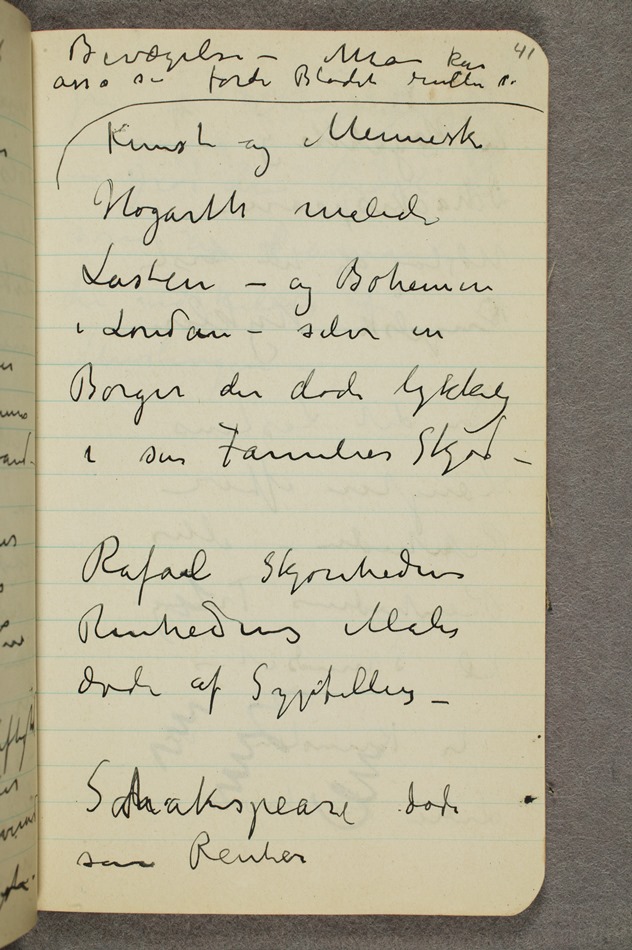 41
Bevægelse – Man kan
også se fordi Bladet ruller sig
Kunst og Mennesk
Hogarth malede
Lasten – og Bohemen
i London – selv en
Borger der døde lykkelig
i sin Families Skjød –
Rafael Skjønhedens
Renhedens Maler
døde af Syphillis –
Schakespeare døde
som Rentier